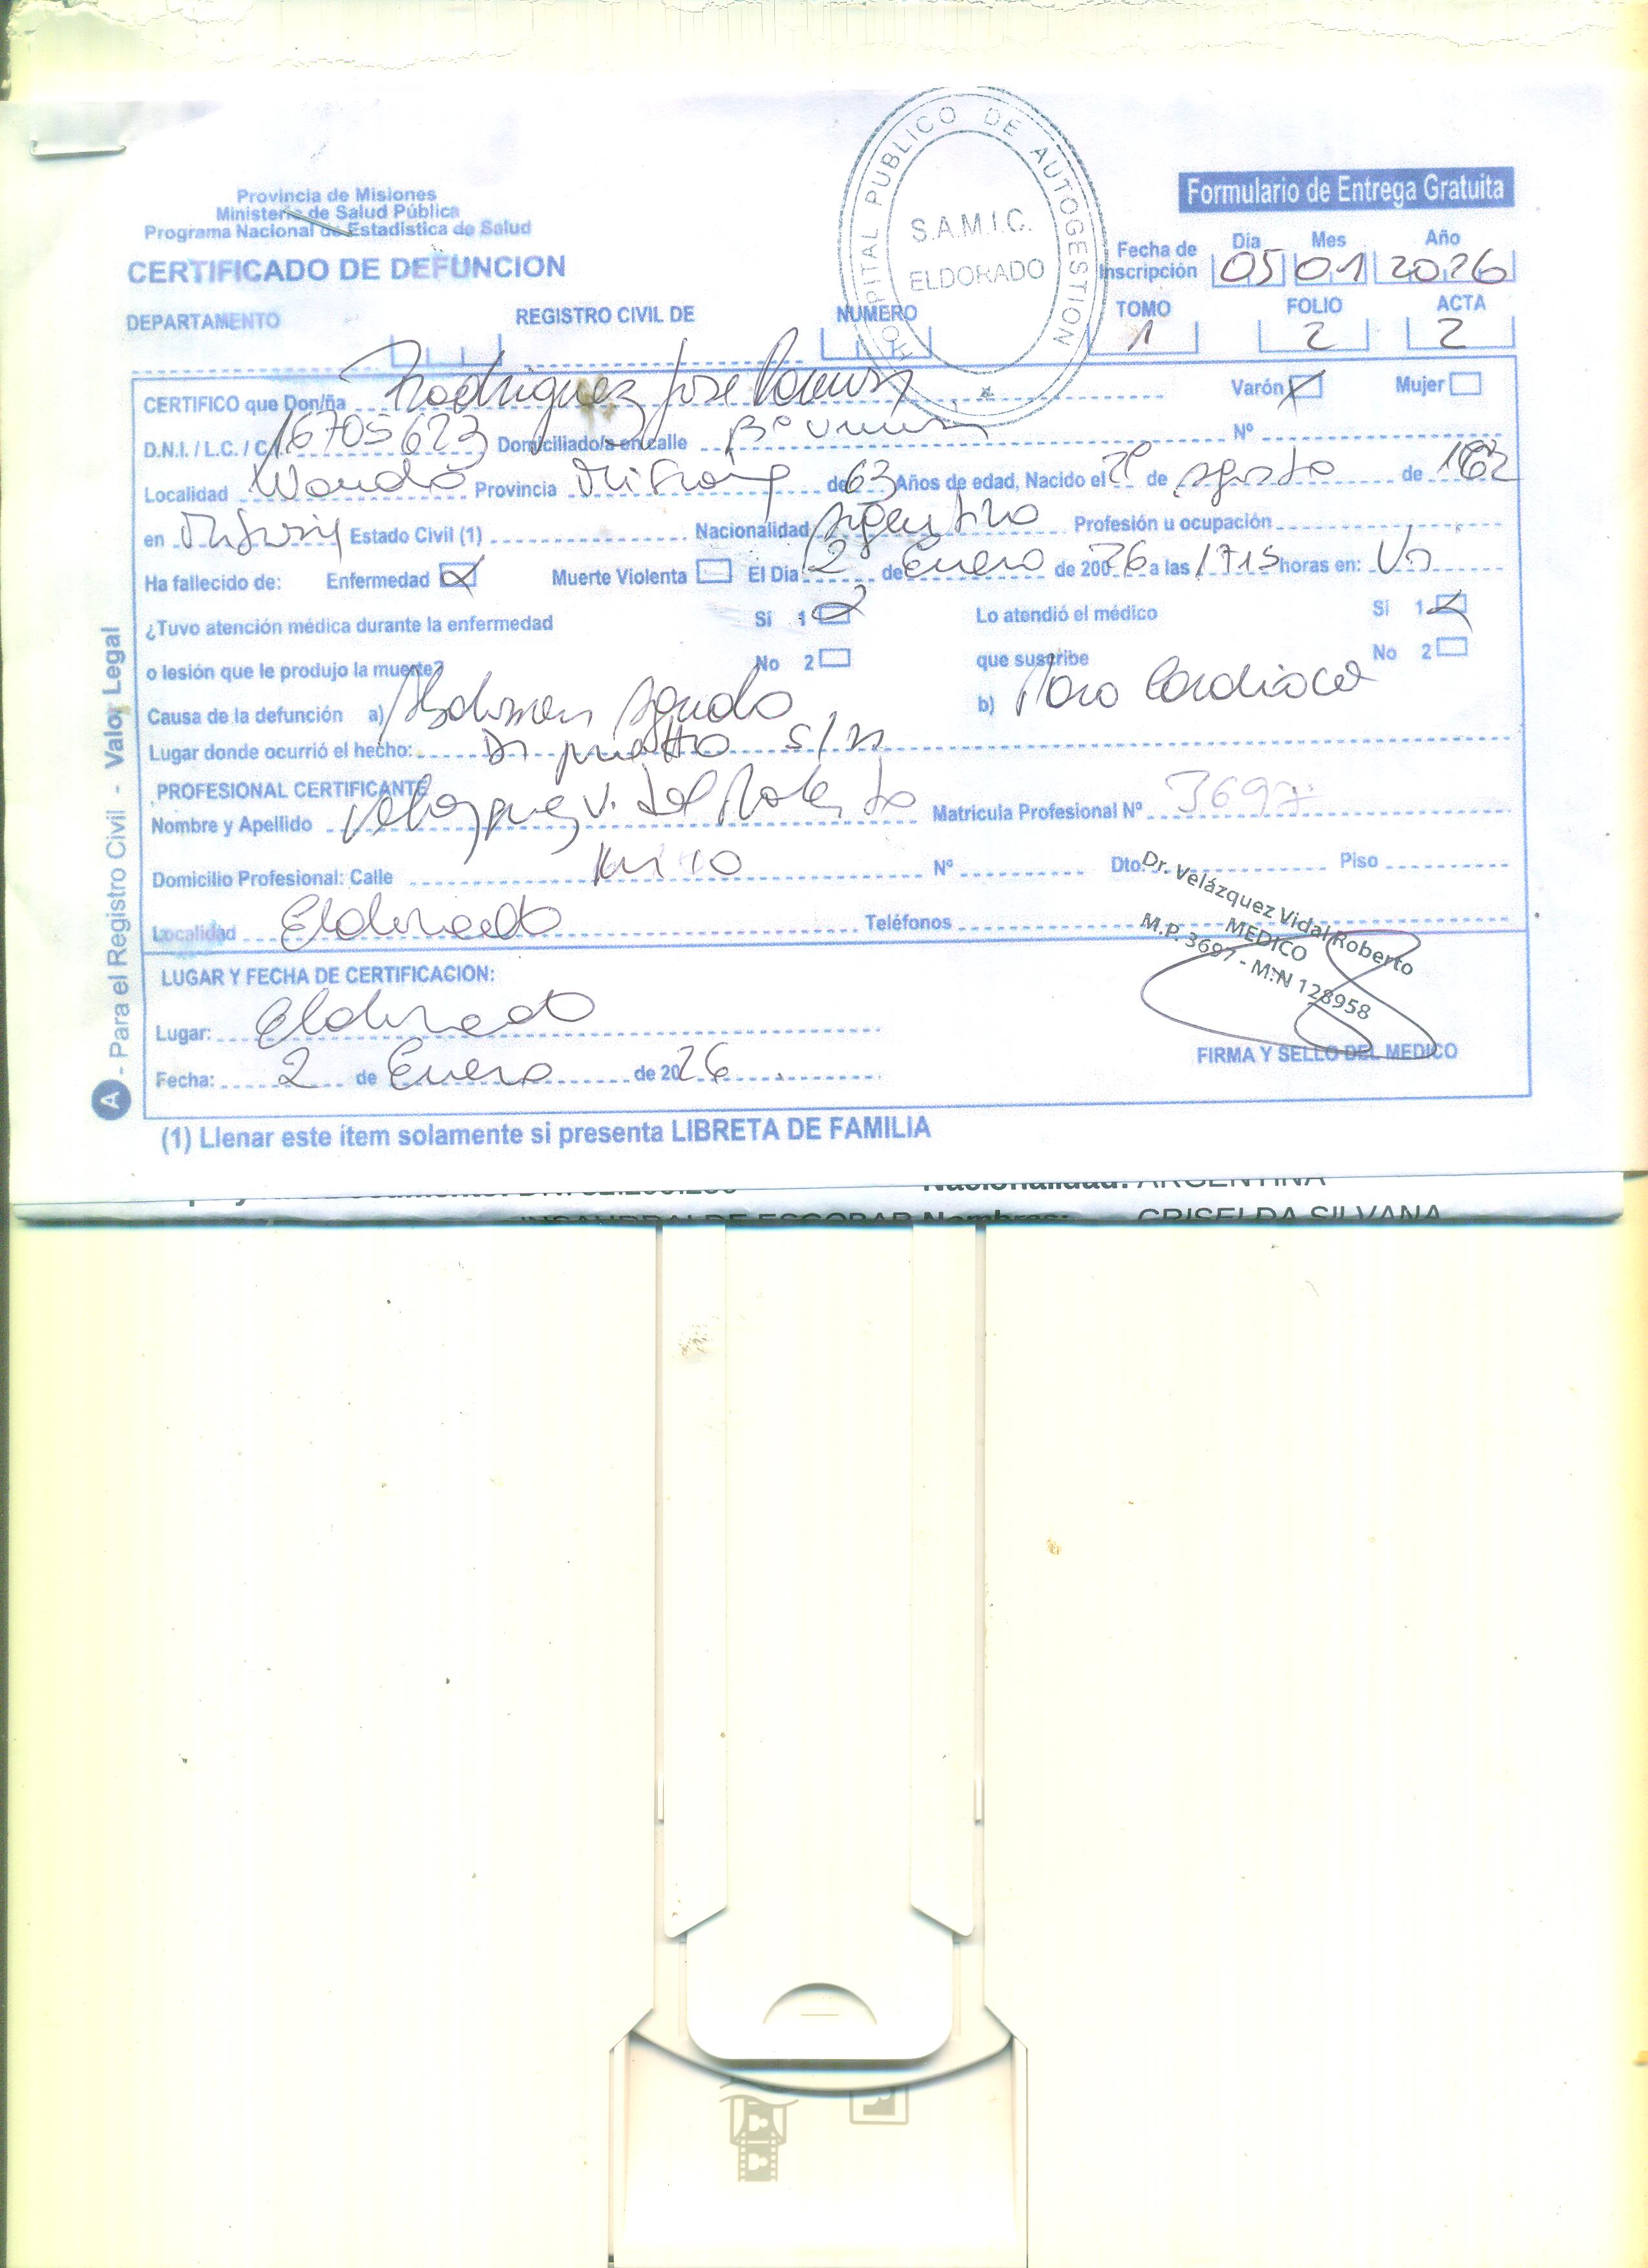 HOSPITAL PUBLICO DE AUTOGESTION
S.A.M.I.C.
ELDORADO
Formulario de Entrega Gratuita
Provincia de Misiones
Ministerio de Salud Pública
Programa Nacional de Estadística de Salud
CERTIFICADO DE DEFUNCION
Fecha de Inscripción Día 05 Mes 01 Año 2026
DEPARTAMENTO REGISTRO CIVIL DE NUMERO TOMO 1 FOLIO 2 ACTA 2
CERTIFICO que Don/ña Rodriguez Jose Ramon Varón X Mujer
D.N.I. / L.C. / C.I. 16705623 Domiciliado/a en calle Bº Nº
Localidad Wanda Provincia Misiones de 63 Años de edad, Nacido el de agosto de 1962
en Misiones Estado Civil (1) Nacionalidad Argentino Profesión u ocupación
Ha fallecido de: Enfermedad X Muerte Violenta El Dia 2 de Enero de 200 26 a las 1715 horas en:
¿Tuvo atención médica durante la enfermedad Sí 1 X Lo atendió el médico Sí 1 X
o lesión que le produjo la muerte? No 2 que suscribe No 2
Causa de la defunción a) Abdomen Agudo b) Paro Cardiaco
Lugar donde ocurrió el hecho: s/n
PROFESIONAL CERTIFICANTE
Nombre y Apellido Velazquez Vidal Roberto Matricula Profesional Nº 3697
Domicilio Profesional: Calle Km 10 Nº Dto. Piso
Localidad Eldorado Teléfonos
Dr. Velázquez Vidal Roberto
MEDICO
M.P. 3697 - M.N 128958
LUGAR Y FECHA DE CERTIFICACION:
Lugar: Eldorado
Fecha: 2 de Enero de 20 26
FIRMA Y SELLO DEL MEDICO
A - Para el Registro Civil - Valor Legal
(1) Llenar este ítem solamente si presenta LIBRETA DE FAMILIA
Nacionalidad: ARGENTINA
INSAURRALDE ESCOBAR Nombres: GRISELDA SILVANA